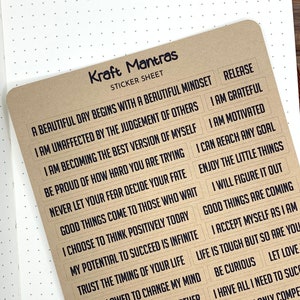 Kraft Mantras
STICKER SHEET
A BEAUTIFUL DAY BEGINS WITH A BEAUTIFUL MINDSET RELEASE
I AM UNAFFECTED BY THE JUDGEMENT OF OTHERS I AM GRATEFUL
I AM BECOMING THE BEST VERSION OF MYSELF I AM MOTIVATED
BE PROUD OF HOW HARD YOU ARE TRYING I CAN REACH ANY GOAL
NEVER LET YOUR FEAR DECIDE YOUR FATE ENJOY THE LITTLE THINGS
GOOD THINGS COME TO THOSE WHO WAIT I WILL FIGURE IT OUT
I CHOOSE TO THINK POSITIVELY TODAY GOOD THINGS ARE COMING
MY POTENTIAL TO SUCCEED IS INFINITE I ACCEPT MYSELF AS I AM
TRUST THE TIMING OF YOUR LIFE LIFE IS TOUGH BUT SO ARE YOU
TO CHANGE MY MIND BE CURIOUS LET LOVE
I HAVE ALL I NEED TO